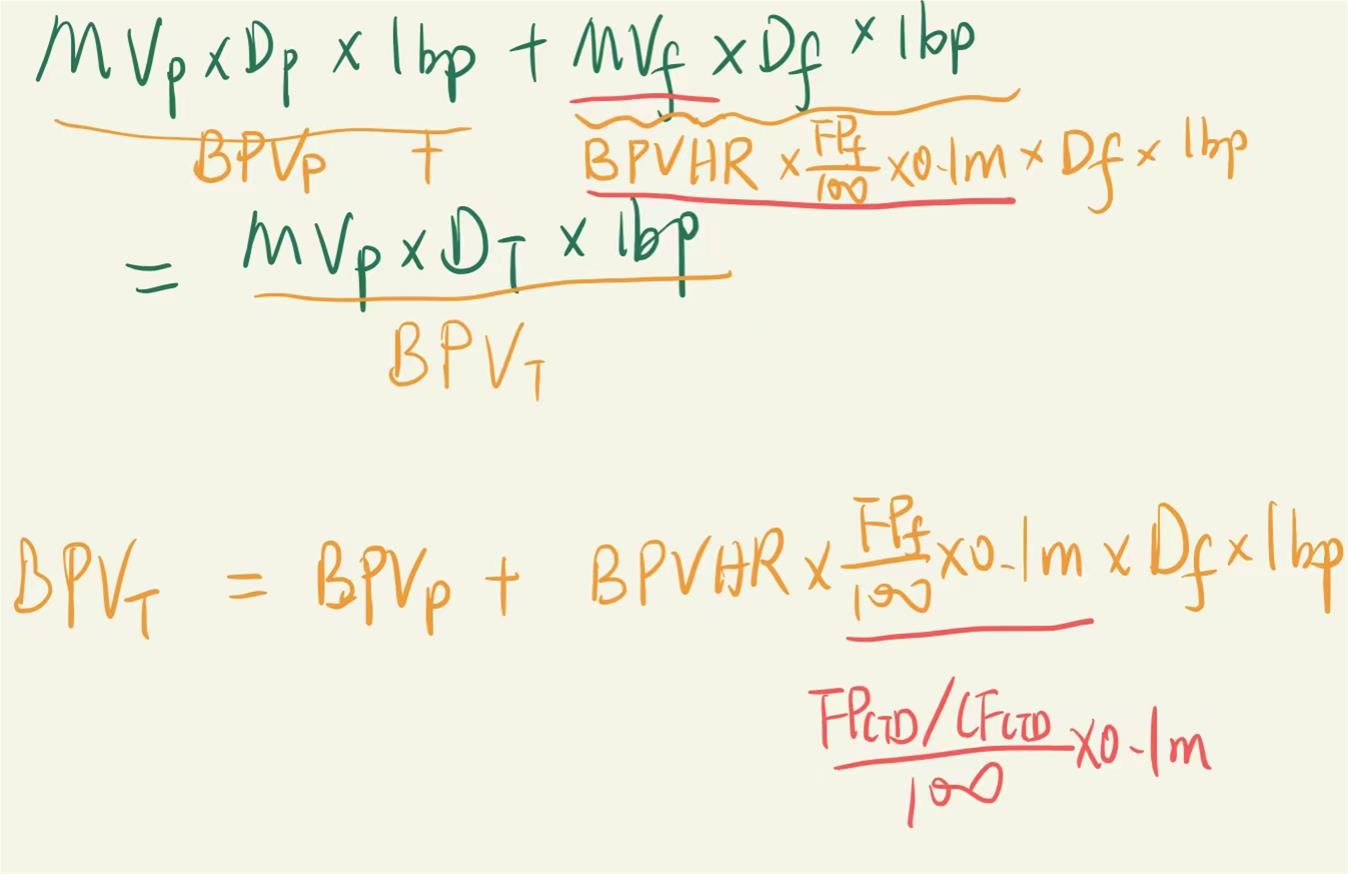 MVp × Dp × 1bp + MVf × Df × 1bp
BPVp + BPVHR × FPf/100 × 0.1m × Df × 1bp
= MVp × DT × 1bp
BPVT
BPVT = BPVp + BPVHR × FPf/100 × 0.1m × Df × 1bp
FPCTD/CFCTD/100 × 0.1m